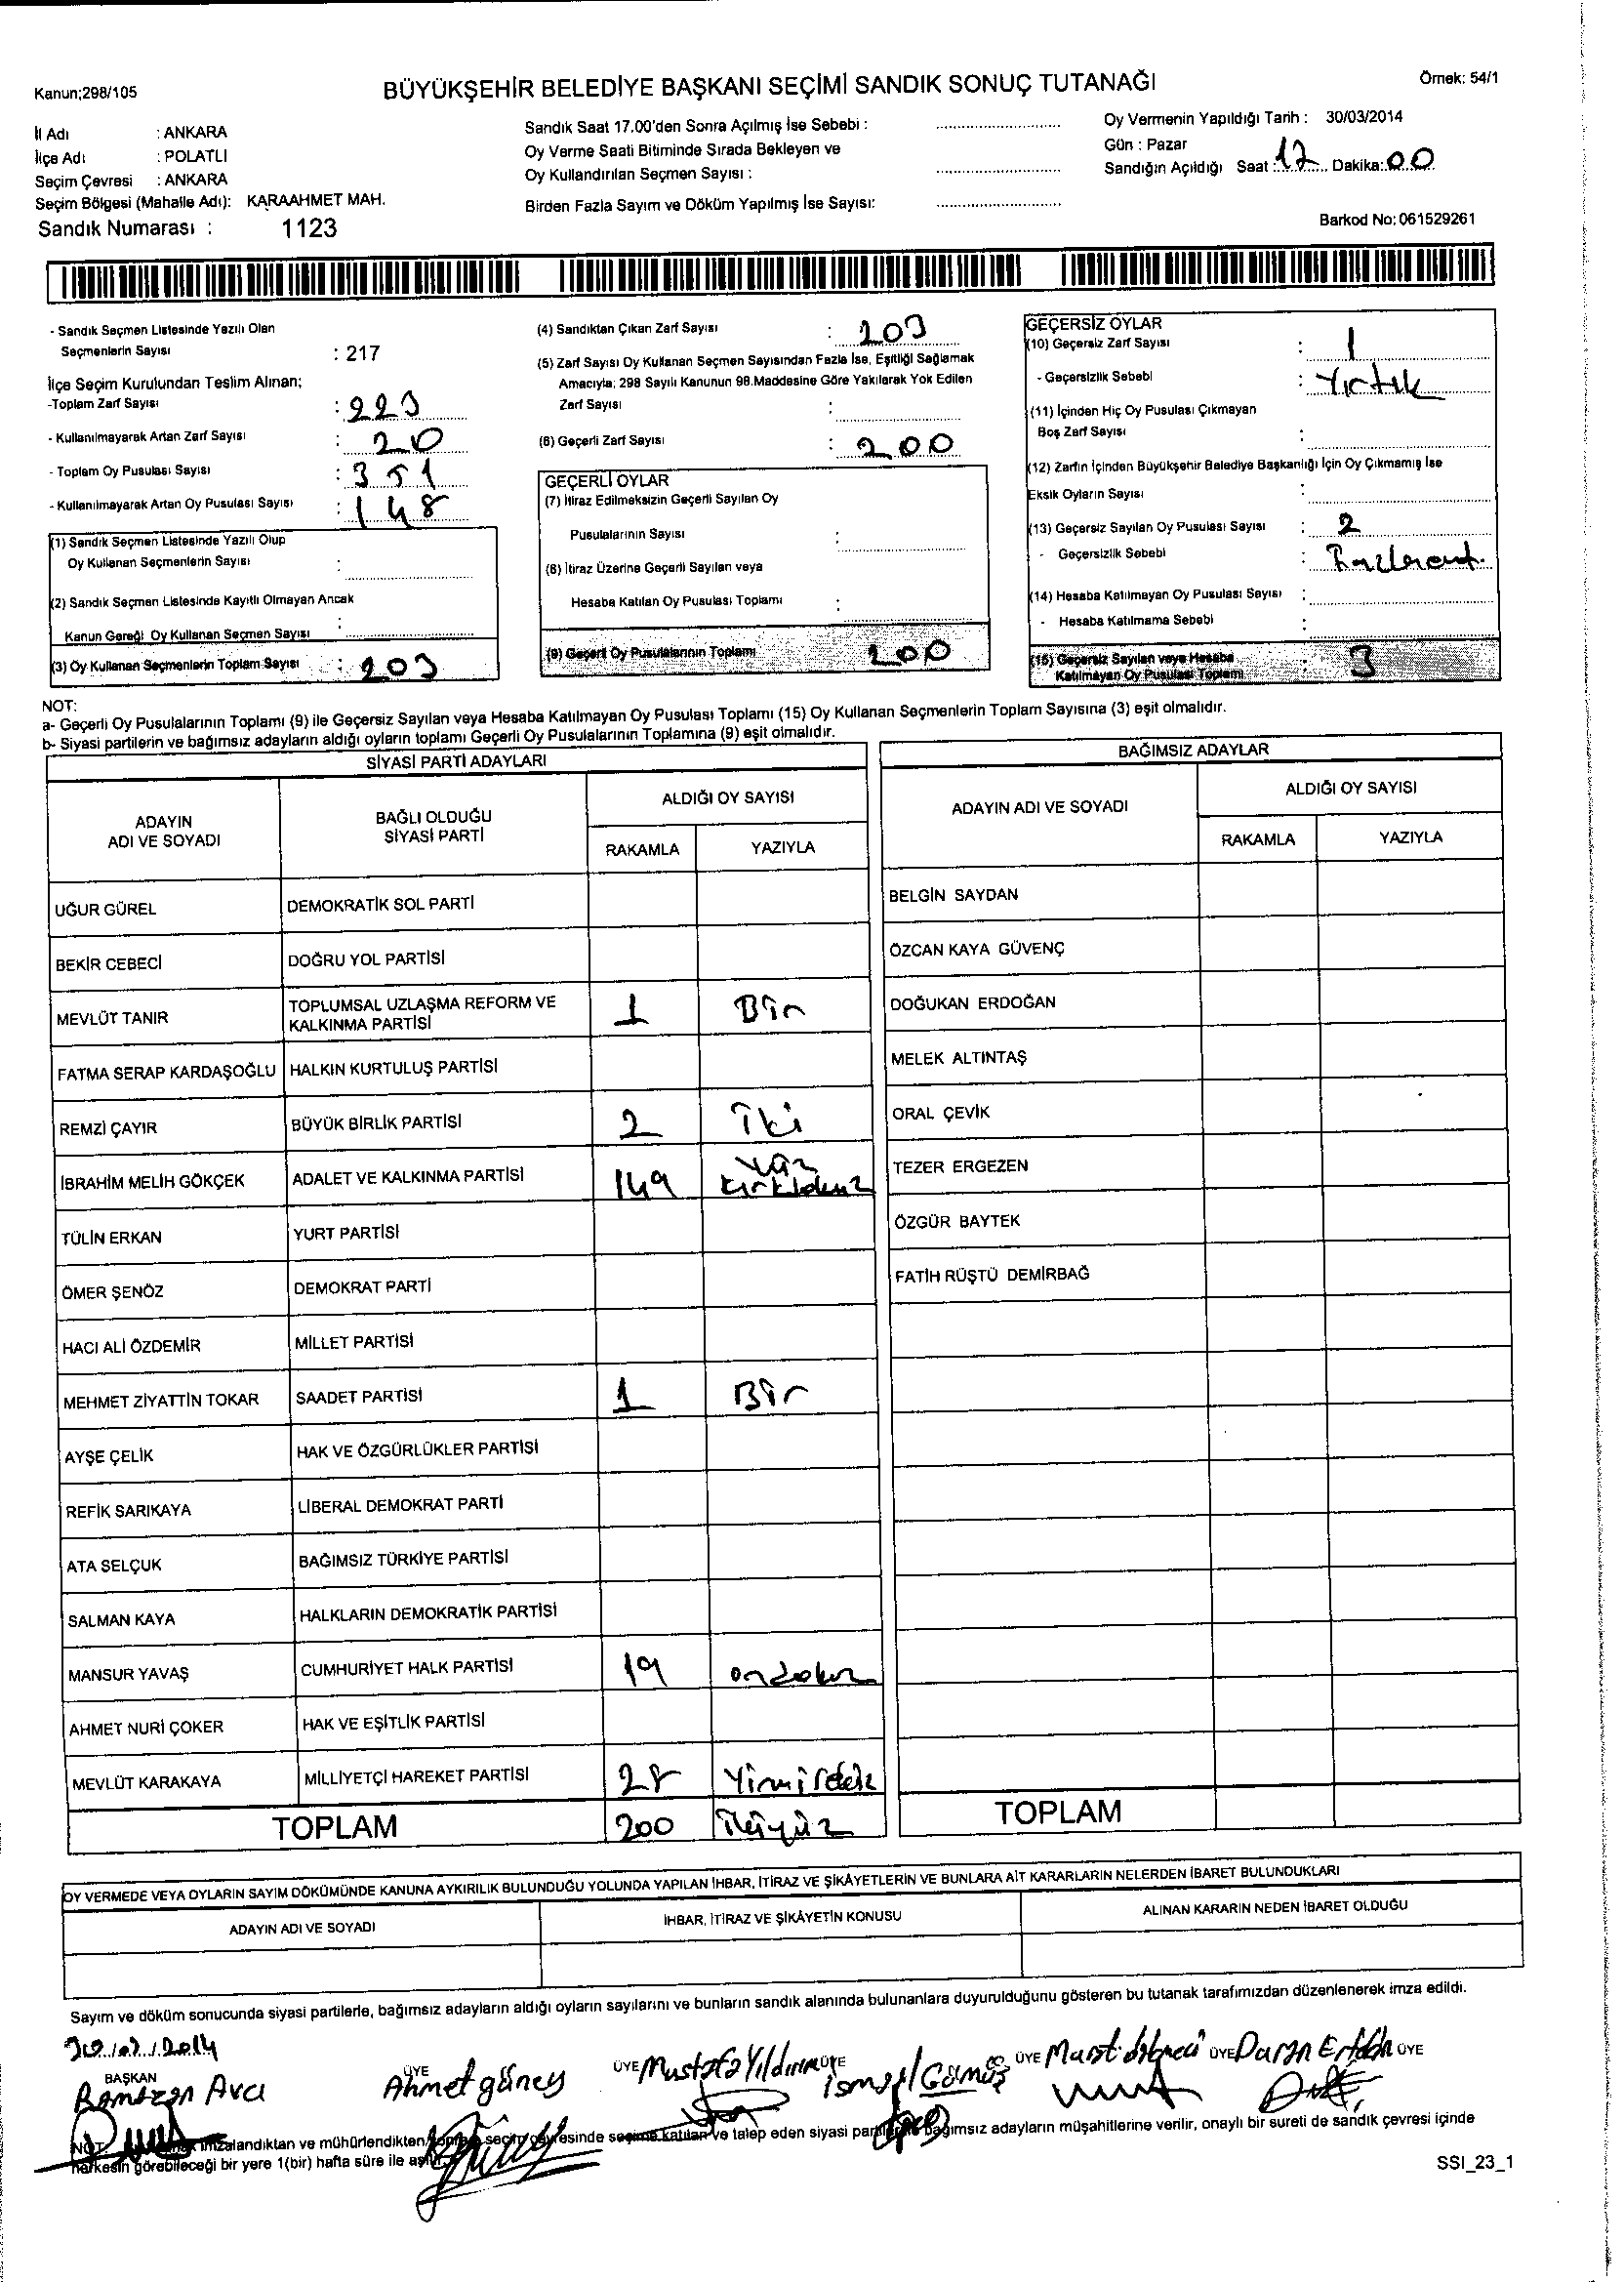 Kanun;298/105
BÜYÜKŞEHİR BELEDİYE BAŞKANI SEÇİMİ SANDIK SONUÇ TUTANAĞI
Örnek: 54/1
İl Adı : ANKARA
İlçe Adı : POLATLI
Seçim Çevresi : ANKARA
Seçim Bölgesi (Mahalle Adı): KARAAHMET MAH.
Sandık Numarası : 1123
Sandık Saat 17.00'den Sonra Açılmış İse Sebebi :
Oy Verme Saati Bitiminde Sırada Bekleyen ve
Oy Kullandırılan Seçmen Sayısı :
Birden Fazla Sayım ve Döküm Yapılmış İse Sayısı:
Oy Vermenin Yapıldığı Tarih : 30/03/2014
Gün : Pazar
Sandığın Açıldığı Saat : 17 Dakika: 00
Barkod No: 061529261
- Sandık Seçmen Listesinde Yazılı Olan
Seçmenlerin Sayısı : 217
İlçe Seçim Kurulundan Teslim Alınan;
-Toplam Zarf Sayısı : 223
- Kullanılmayarak Artan Zarf Sayısı : 20
- Toplam Oy Pusulası Sayısı : 351
- Kullanılmayarak Artan Oy Pusulası Sayısı : 148
(1) Sandık Seçmen Listesinde Yazılı Olup
Oy Kullanan Seçmenlerin Sayısı :
(2) Sandık Seçmen Listesinde Kayıtlı Olmayan Ancak
Kanun Gereği Oy Kullanan Seçmen Sayısı :
(3) Oy Kullanan Seçmenlerin Toplam Sayısı : 203
(4) Sandıktan Çıkan Zarf Sayısı : 203
(5) Zarf Sayısı Oy Kullanan Seçmen Sayısından Fazla İse, Eşitliği Sağlamak
Amacıyla; 298 Sayılı Kanunun 98.Maddesine Göre Yakılarak Yok Edilen
Zarf Sayısı :
(6) Geçerli Zarf Sayısı : 200
GEÇERLİ OYLAR
(7) İtiraz Edilmeksizin Geçerli Sayılan Oy
Pusulalarının Sayısı :
(8) İtiraz Üzerine Geçerli Sayılan veya
Hesaba Katılan Oy Pusulası Toplamı :
(9) Geçerli Oy Pusulalarının Toplamı 200
GEÇERSİZ OYLAR
(10) Geçersiz Zarf Sayısı : 1
- Geçersizlik Sebebi : Yırtık
(11) İçinden Hiç Oy Pusulası Çıkmayan
Boş Zarf Sayısı :
(12) Zarfın İçinden Büyükşehir Belediye Başkanlığı İçin Oy Çıkmamış İse
Eksik Oyların Sayısı :
(13) Geçersiz Sayılan Oy Pusulası Sayısı : 2
- Geçersizlik Sebebi :
(14) Hesaba Katılmayan Oy Pusulası Sayısı :
- Hesaba Katılmama Sebebi :
(15) Geçersiz Sayılan veya Hesaba
Katılmayan Oy Pusulası Toplamı : 3
NOT:
a- Geçerli Oy Pusulalarının Toplamı (9) ile Geçersiz Sayılan veya Hesaba Katılmayan Oy Pusulası Toplamı (15) Oy Kullanan Seçmenlerin Toplam Sayısına (3) eşit olmalıdır.
b- Siyasi partilerin ve bağımsız adayların aldığı oyların toplamı Geçerli Oy Pusulalarının Toplamına (9) eşit olmalıdır.
SİYASİ PARTİ ADAYLARI
ADAYIN
ADI VE SOYADI
BAĞLI OLDUĞU
SİYASİ PARTİ
ALDIĞI OY SAYISI
RAKAMLA YAZIYLA
UĞUR GÜREL DEMOKRATİK SOL PARTİ
BEKİR CEBECİ DOĞRU YOL PARTİSİ
MEVLÜT TANIR TOPLUMSAL UZLAŞMA REFORM VE KALKINMA PARTİSİ 1 Bir
FATMA SERAP KARDAŞOĞLU HALKIN KURTULUŞ PARTİSİ
REMZİ ÇAYIR BÜYÜK BİRLİK PARTİSİ 2 İki
İBRAHİM MELİH GÖKÇEK ADALET VE KALKINMA PARTİSİ 149 Yüz kırkdokuz
TÜLİN ERKAN YURT PARTİSİ
ÖMER ŞENÖZ DEMOKRAT PARTİ
HACI ALİ ÖZDEMİR MİLLET PARTİSİ
MEHMET ZİYATTİN TOKAR SAADET PARTİSİ 1 Bir
AYŞE ÇELİK HAK VE ÖZGÜRLÜKLER PARTİSİ
REFİK SARIKAYA LİBERAL DEMOKRAT PARTİ
ATA SELÇUK BAĞIMSIZ TÜRKİYE PARTİSİ
SALMAN KAYA HALKLARIN DEMOKRATİK PARTİSİ
MANSUR YAVAŞ CUMHURİYET HALK PARTİSİ 19 ondokuz
AHMET NURİ ÇOKER HAK VE EŞİTLİK PARTİSİ
MEVLÜT KARAKAYA MİLLİYETÇİ HAREKET PARTİSİ 28
TOPLAM 200 İkiyüz
BAĞIMSIZ ADAYLAR
ADAYIN ADI VE SOYADI
ALDIĞI OY SAYISI
RAKAMLA YAZIYLA
BELGİN SAYDAN
ÖZCAN KAYA GÜVENÇ
DOĞUKAN ERDOĞAN
MELEK ALTINTAŞ
ORAL ÇEVİK
TEZER ERGEZEN
ÖZGÜR BAYTEK
FATİH RÜŞTÜ DEMİRBAĞ
TOPLAM
OY VERMEDE VEYA OYLARIN SAYIM DÖKÜMÜNDE KANUNA AYKIRILIK BULUNDUĞU YOLUNDA YAPILAN İHBAR, İTİRAZ VE ŞİKÂYETLERİN VE BUNLARA AİT KARARLARIN NELERDEN İBARET BULUNDUKLARI
ADAYIN ADI VE SOYADI İHBAR, İTİRAZ VE ŞİKÂYETİN KONUSU ALINAN KARARIN NEDEN İBARET OLDUĞU
Sayım ve döküm sonucunda siyasi partilerle, bağımsız adayların aldığı oyların sayılarını ve bunların sandık alanında bulunanlara duyurulduğunu gösteren bu tutanak tarafımızdan düzenlenerek imza edildi.
BAŞKAN ÜYE ÜYE ÜYE ÜYE ÜYE ÜYE
Ramazan Avcı Ahmet güney Mustafa Yıldırım İsmail Gümüş
NOT: imzalandıktan ve mühürlendikten sonra seçim çevresinde seçime katılan ve talep eden siyasi partilerle bağımsız adayların müşahitlerine verilir, onaylı bir sureti de sandık çevresi içinde
herkesin görebileceği bir yere 1(bir) hafta süre ile asılır.
SSI_23_1